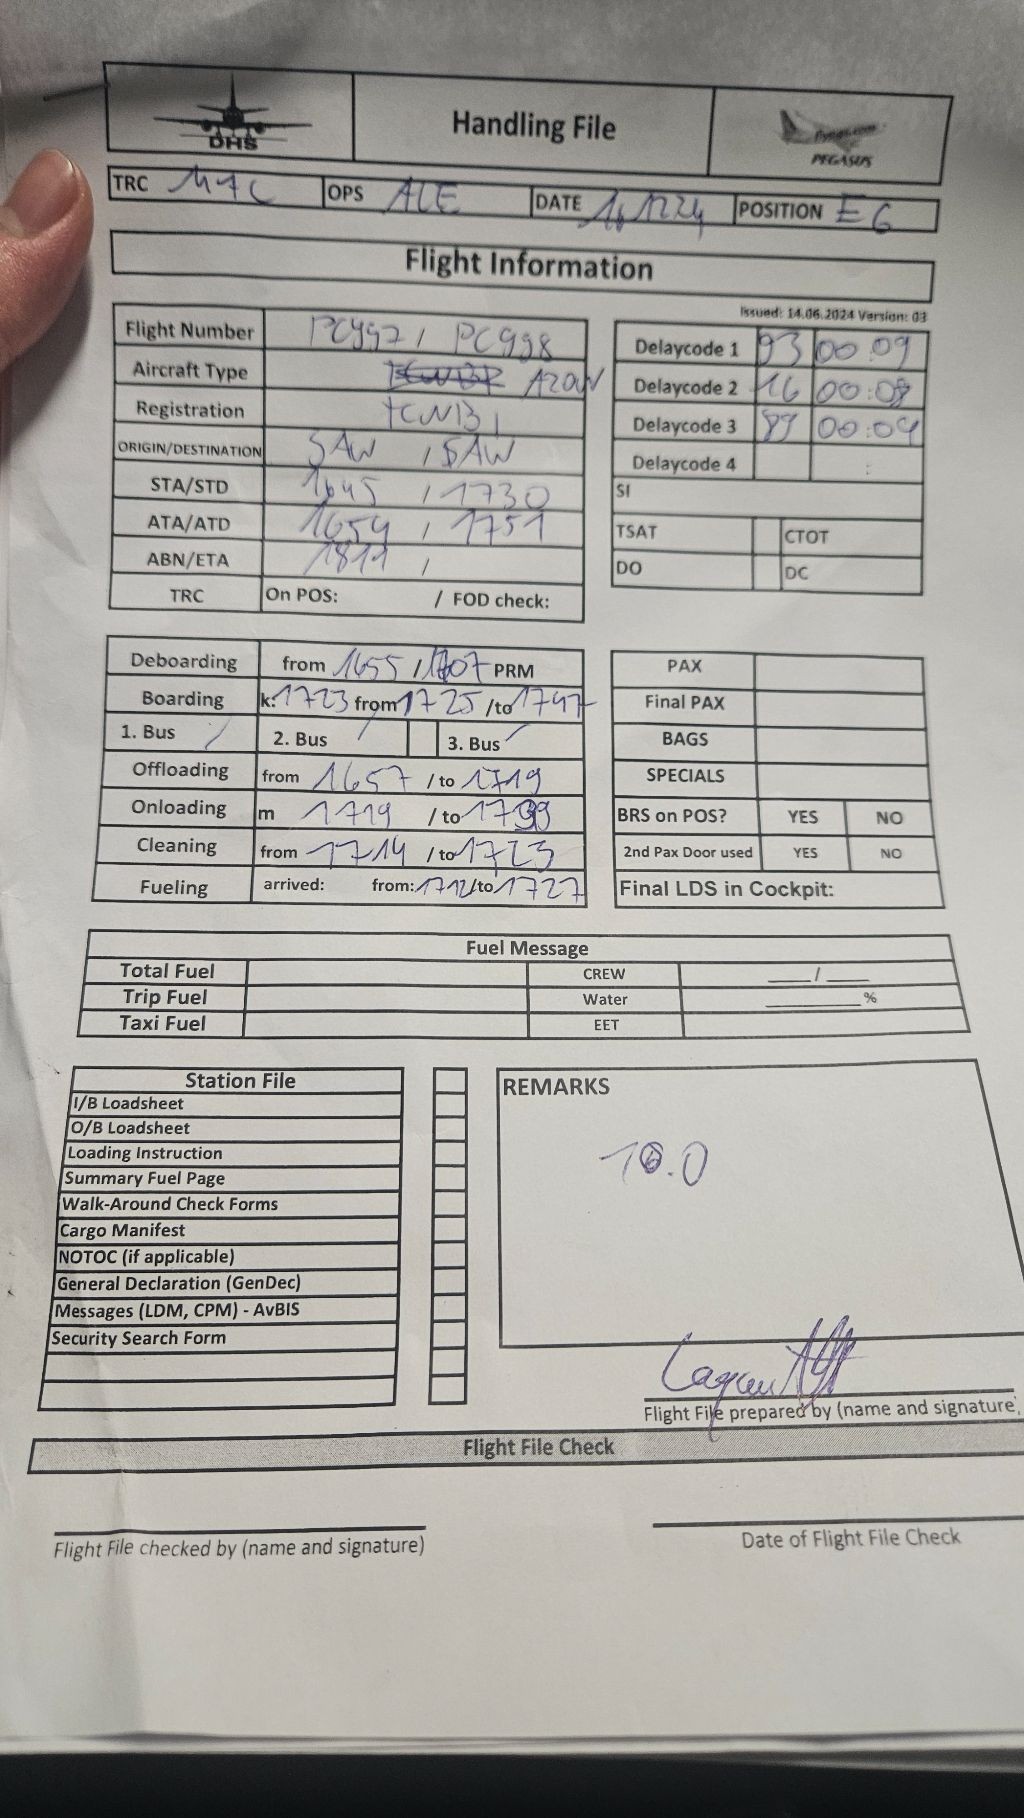 DHS Handling File flypgs.com
PEGASUS
TRC OPS ACE DATE POSITION E6
Flight Information
Issued: 14.06.2024 Version: 03
Flight Number PC997 / PC998 Delaycode 1 93 00:09
Aircraft Type A20N Delaycode 2 16 00:08
Registration TCNBI Delaycode 3 89 00:04
ORIGIN/DESTINATION SAW / SAW Delaycode 4 :
STA/STD 1645 / 1730 SI
ATA/ATD 1654 / 1751 TSAT CTOT
ABN/ETA 1811 / DO DC
TRC On POS: / FOD check:
Deboarding from 1655 / 1707 PRM PAX
Boarding k: 1723 from 1725 /to 1747 Final PAX
1. Bus / 2. Bus / 3. Bus / BAGS
Offloading from 1657 / to 1719 SPECIALS
Onloading m 1719 / to 1739 BRS on POS? YES NO
Cleaning from 1714 / to 1723 2nd Pax Door used YES NO
Fueling arrived: from: 1712 /to 1727 Final LDS in Cockpit:
Fuel Message
Total Fuel CREW ___/___
Trip Fuel Water ______%
Taxi Fuel EET
Station File REMARKS
I/B Loadsheet
O/B Loadsheet
Loading Instruction 10.0
Summary Fuel Page
Walk-Around Check Forms
Cargo Manifest
NOTOC (if applicable)
General Declaration (GenDec)
Messages (LDM, CPM) - AvBIS
Security Search Form
Flight File prepared by (name and signature)
Flight File Check
Flight File checked by (name and signature) Date of Flight File Check